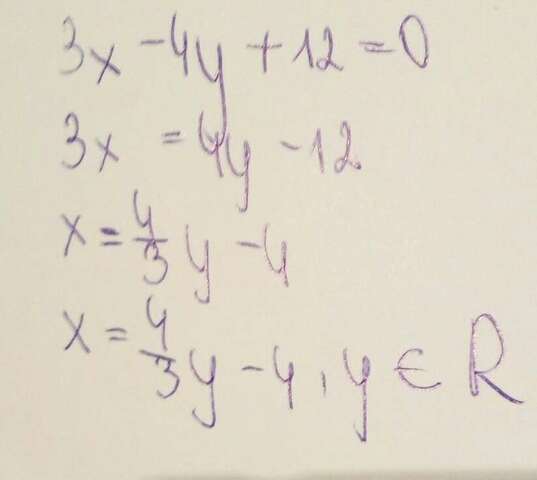 3x - 4y + 12 = 0
3x = 4y - 12
x = 4/3 y - 4
x = 4/3 y - 4, y ∈ R